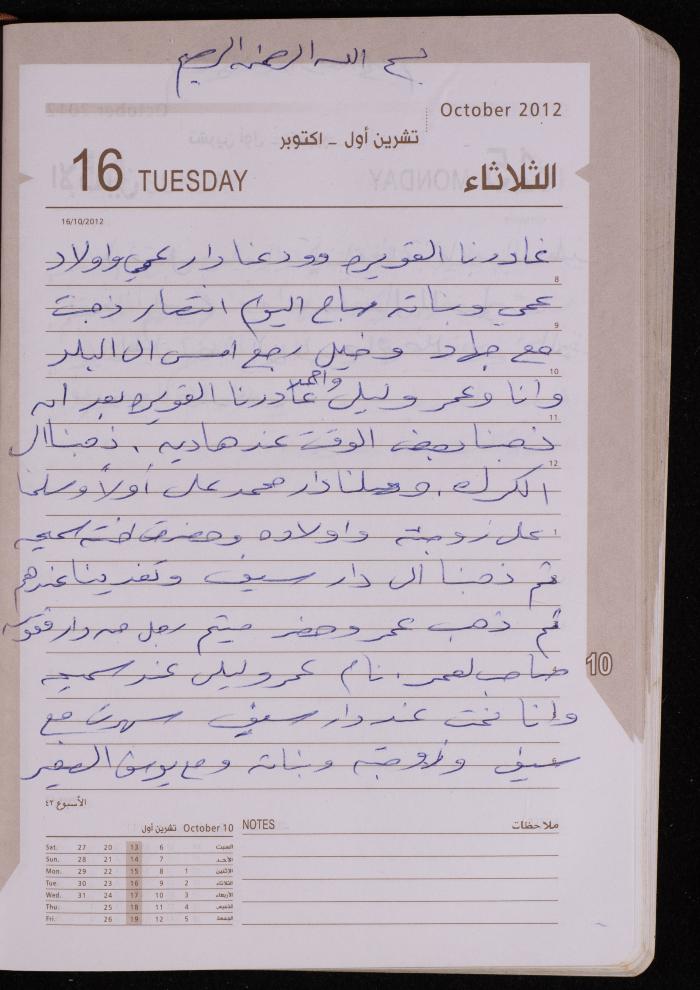 بسم الله الرحمن الرحيم
October 2012
تشرين أول - اكتوبر
16 TUESDAY الثلاثاء
16/10/2012
غادرنا القويره وودعنا دار عمي واولاد
8
عمي وبناته صباح اليوم انتصار ذهبت
9
مع جهاد وخليل رجع امس الى البلد
10
وانا وعمر وليلى واحمد غادرنا القويره بعد ان
11
ذهبنا بعض الوقت عند هاديه . ذهبنا الى
12
الكرك . وصلنا دار محمد علي أولاً وسلمنا
على زوجته واولاده وحضرت اخته سميحه
ثم ذهبنا الى دار سيف وتغدينا عندهم
ثم ذهب عمر وحضر ميتم رجل من دار
صاحب لعمر . نام عمر وليلى عند سميحه
وانا نمت عند دار سيف سهرت مع
سيف وزوجته وبناته ومع يوسف الصغير
10
الأسبوع ٤٢
October 10 تشرين أول
Sat. 27 20 13 6 السبت
Sun. 28 21 14 7 الأحد
Mon. 29 22 15 8 1 الإثنين
Tue. 30 23 16 9 2 الثلاثاء
Wed. 31 24 17 10 3 الأربعاء
Thu. 25 18 11 4 الخميس
Fri. 26 19 12 5 الجمعة
NOTES ملاحظات